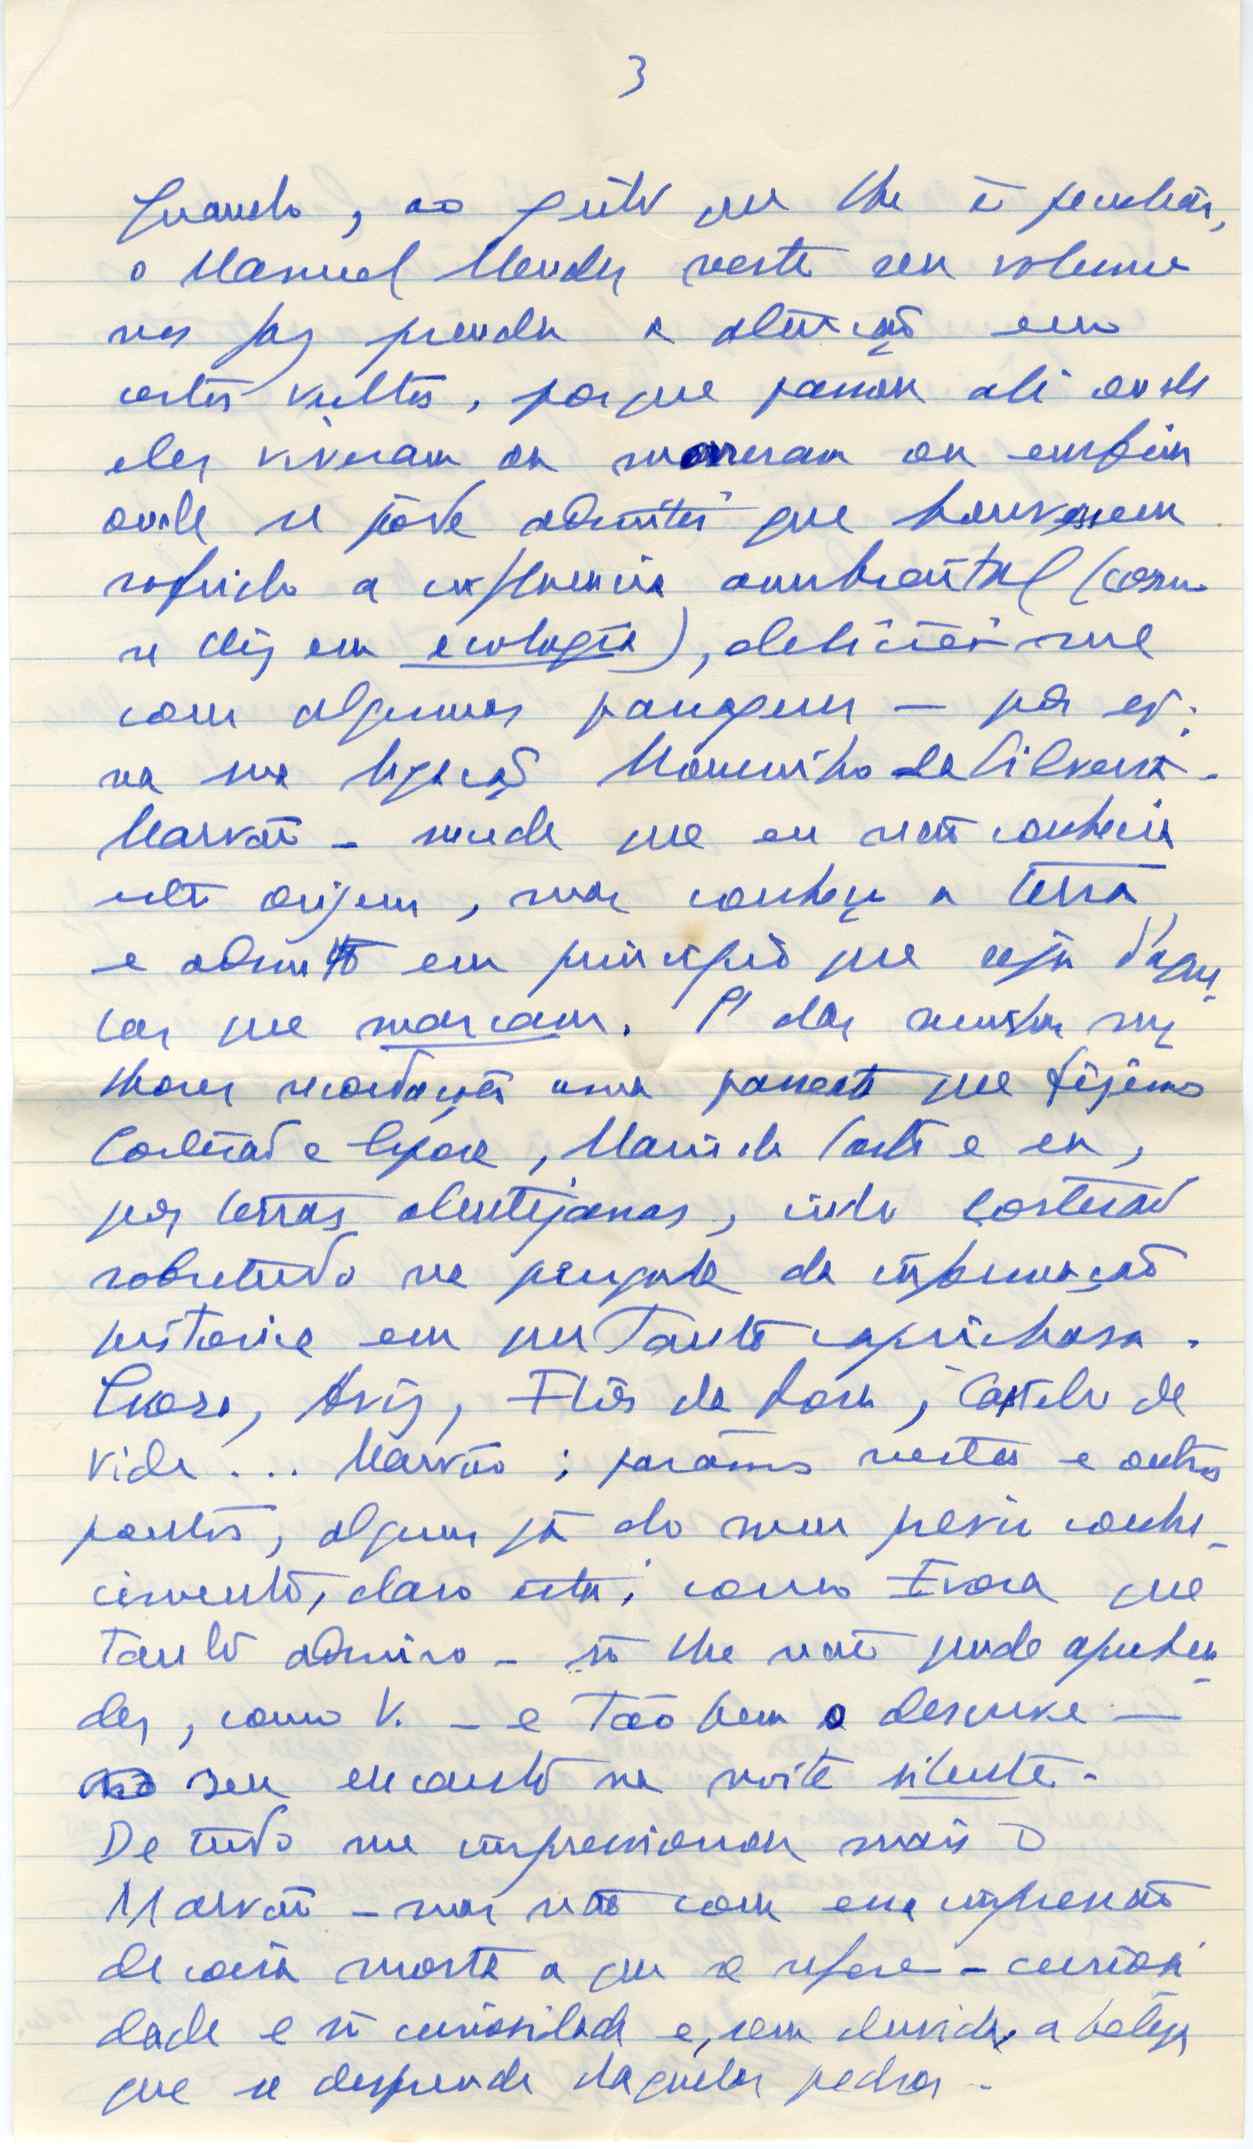 3
Quando, ao geito que lhe é peculiar,
o Manuel Mendes neste seu volume
nos faz prender a atenção em
certos vultos, porque passou ali onde
eles viveram ou morreram ou enfim
onde se pode admitir que houvessem
sofrido a influencia ambiental (como
se diz em ecologia), deliciei-me
com algumas passagens — por ex:
na sua ligação Mousinho da Silveira-
Marvão - sendo que eu não conhecia
esta origem, mas conheço a terra
e admito em principio que seja
que marcam. É das minhas me-
lhores recordações uma que fizemos
Cortesão e Esposa, Mario de Castro e eu,
por terras alentejanas, indo Cortesão
sobretudo na pesquisa da informação
historica em que tanto caprichava.
Evora, Aviz, Flôr da Rosa, Castelo de
Vide ... Marvão; parámos nestes e outros
pontos, alguns já do meu prévio conhe-
cimento, claro está, como Evora que
tanto admiro - só lhe não pude apreen-
der, como V. - e tão bem o descreve —
seu encanto na noite silente.
De tudo me impressionou mais o
Marvão - mas não com essa impressão
de coisa morta a que se refere - curiosi-
dade e só curiosidade e, sem duvida, a beleza
que se desprende daquelas pedras.